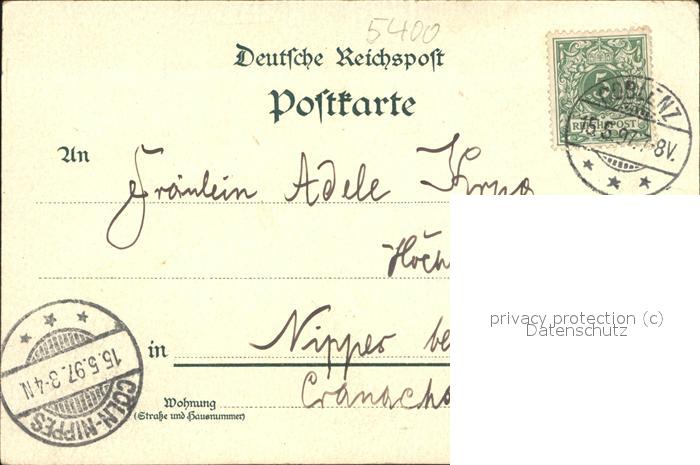 5400
Deutsche Reichspost
Postkarte
5
REICHSPOST
COBLENZ
15.5.97.7-8V.
An
Fräulein Adele
Höch
in Nippes be
Cranachs
Wohnung
(Straße und Hausnummer)
15.5.97.3-4N
CÖLN-NIPPES
privacy protection (c)
Datenschutz